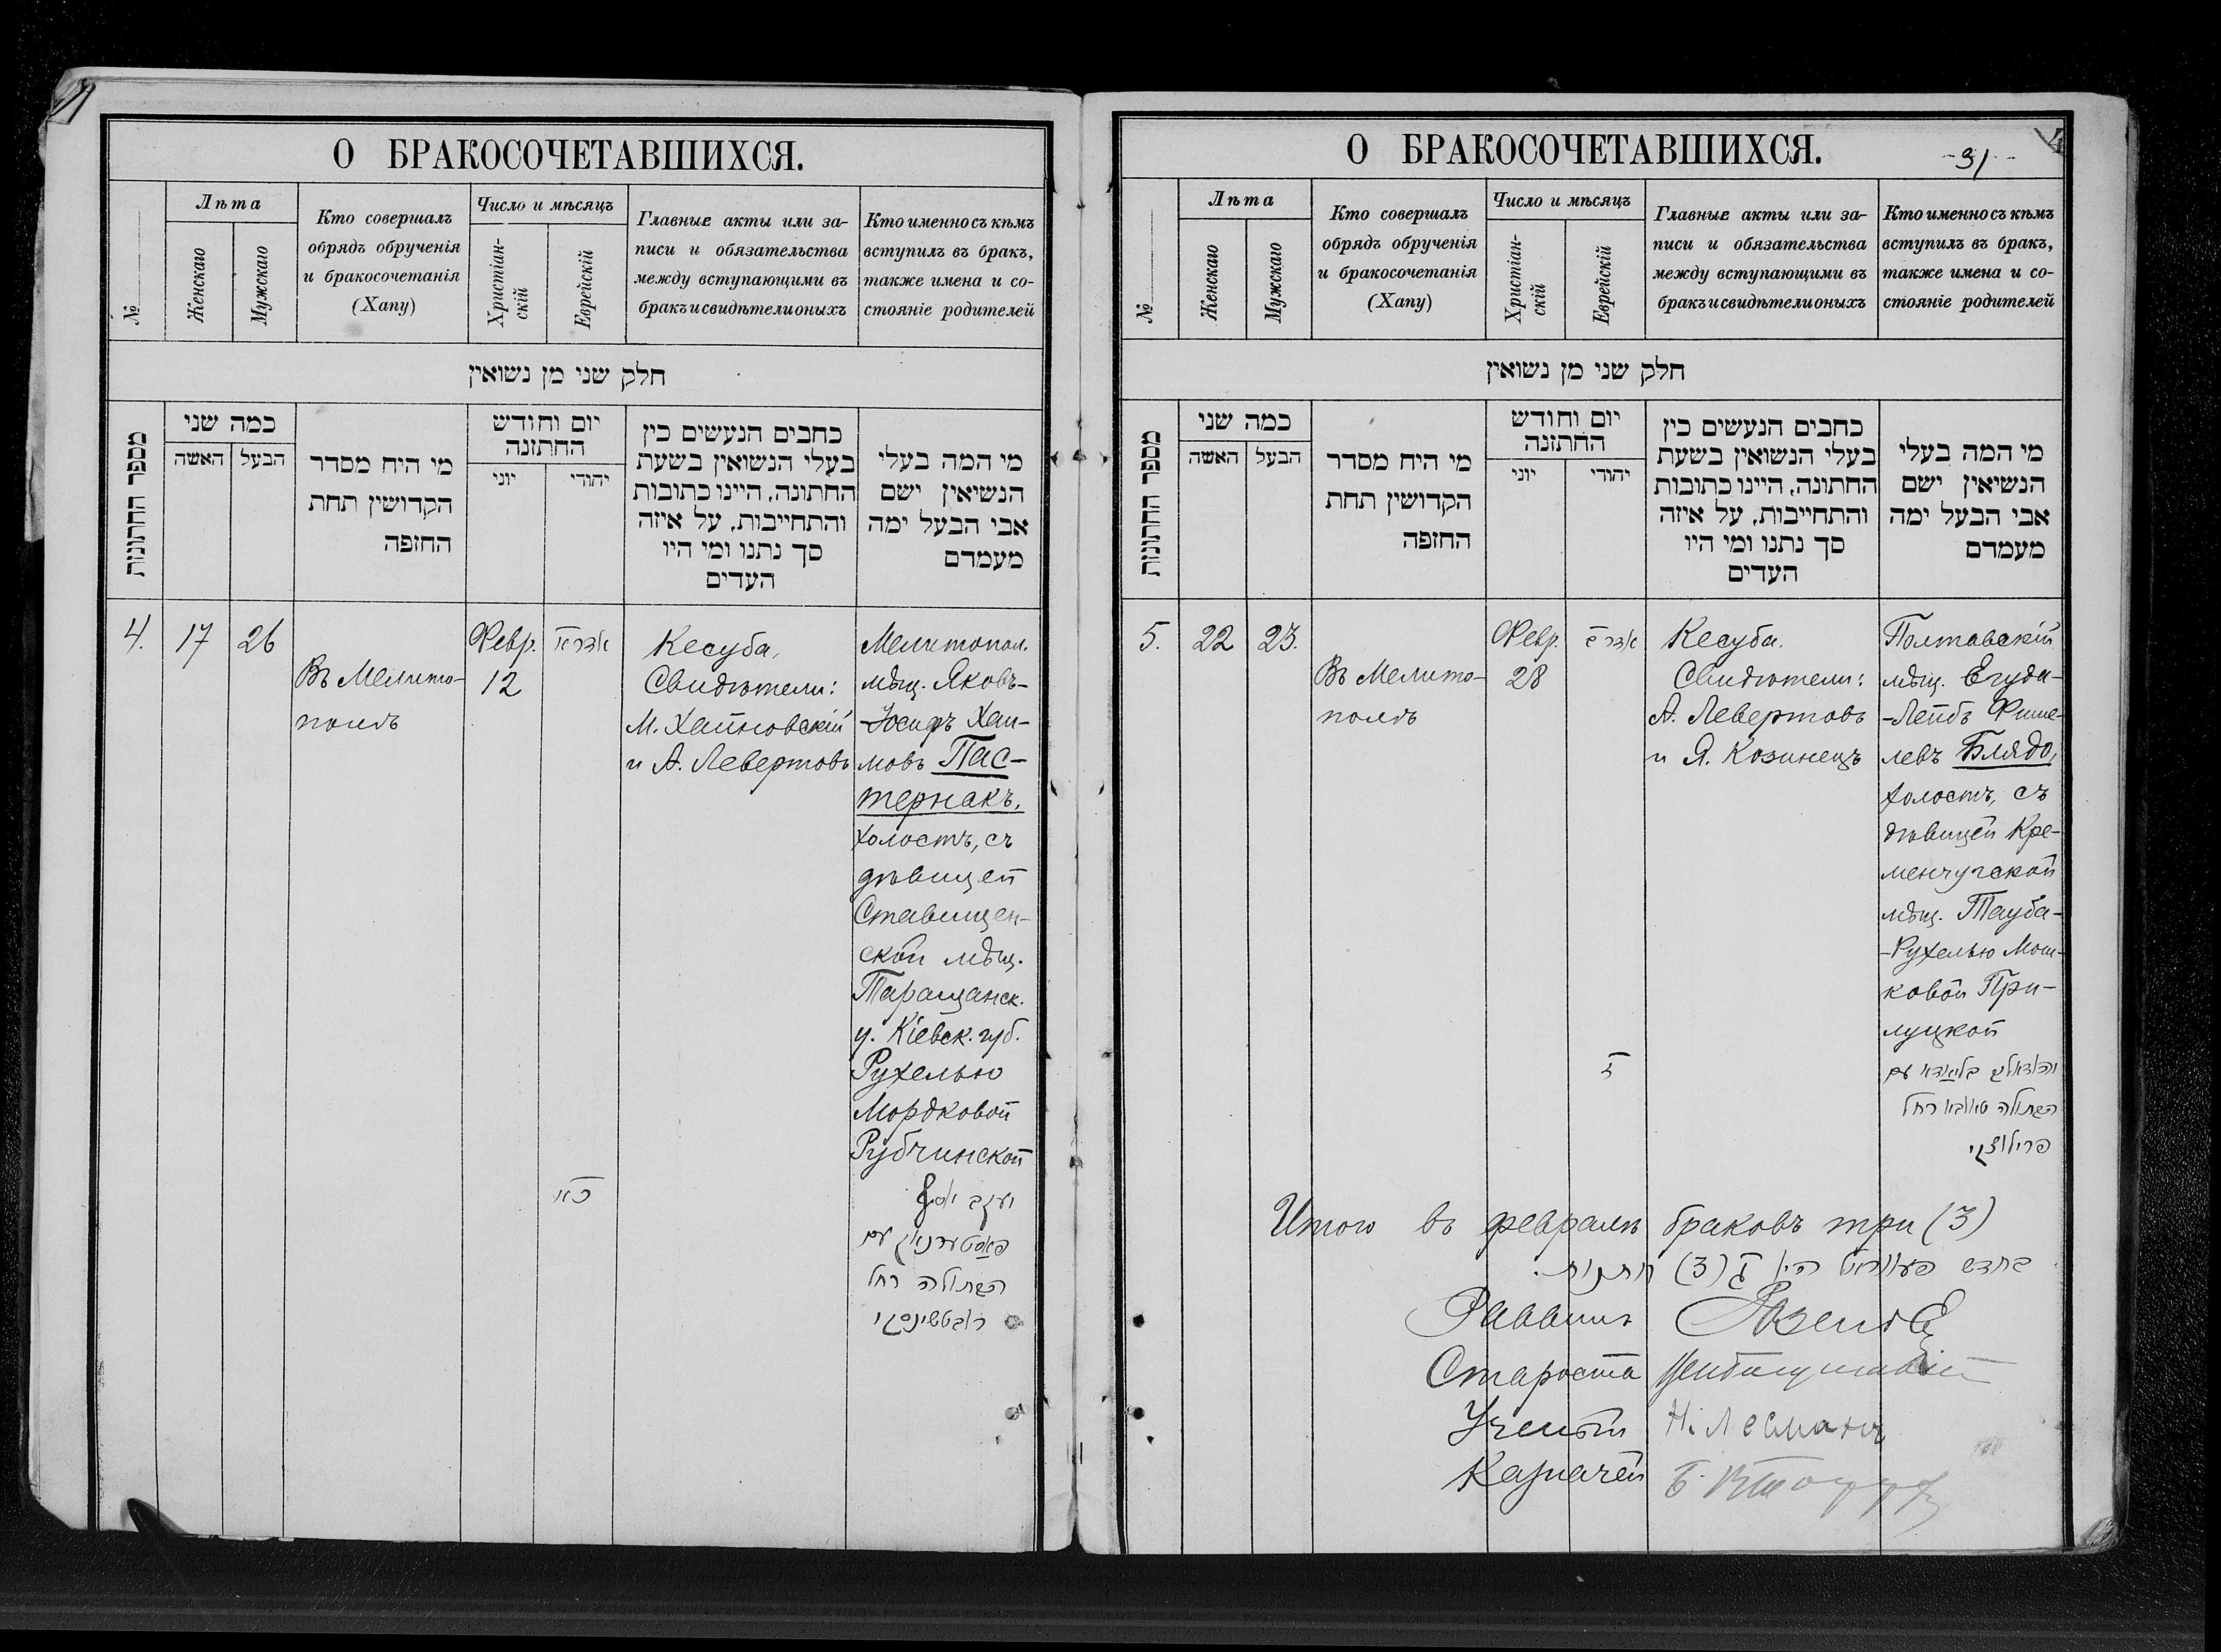 О БРАКОСОЧЕТАВШИХСЯ.
№
Лѣта
Женскаго
Мужскаго
Кто совершалъ
обрядъ обрученія
и бракосочетанія
(Хапу)
Число и мѣсяцъ
Христіан-
скій
Еврейскій
Главные акты или за-
писи и обязательства
между вступающими въ
бракъ и свидѣтели оныхъ
Кто именно съ кѣмъ
вступилъ въ бракъ,
также имена и со-
стояніе родителей
חלק שני מן נשואין
מספר החתונות
כמה שני
האשה
הבעל
מי היח מסדר
הקדושין תחת
החזפה
יום וחודש
החתונה
יוני
יהודי
כחבים הנעשים כין
בעלי הנשואין בשעת
החתונה, היינו כתובות
והתחייבות, על איזה
סך נתנו ומי היו
העדים
מי המה בעלי
הנשיאין ישם
אבי הבעל ימה
מעמדם
4.
17
26
Въ Мелито-
полѣ
Февр.
12
כ״א
Кесуба,
Свидѣтели:
М. Хайновскій
и А. Левертовъ
Мелитопол.
мѣщ. Яковъ-
-Іосифъ Хаи-
мовъ Пас-
тернакъ,
холостъ, съ
дѣвицей
Ставищен-
ской мѣщ.
Таращанск.
у. Кіевск. губ.
Рухелью
Мордковой
Рубчинской
יעקב יוסף
פאסטערנאק עם
הבתולה רחל
ראבטשינסקי
О БРАКОСОЧЕТАВШИХСЯ.
31
4
№
Лѣта
Женскаго
Мужскаго
Кто совершалъ
обрядъ обрученія
и бракосочетанія
(Хапу)
Число и мѣсяцъ
Христіан-
скій
Еврейскій
Главные акты или за-
писи и обязательства
между вступающими въ
бракъ и свидѣтели оныхъ
Кто именно съ кѣмъ
вступилъ въ бракъ,
также имена и со-
стояніе родителей
חלק שני מן נשואין
מספר החתונות
כמה שני
האשה
הבעל
מי היח מסדר
הקדושין תחת
החזפה
יום וחודש
החתונה
יוני
יהודי
כחבים הנעשים כין
בעלי הנשואין בשעת
החתונה, היינו כתובות
והתחייבות, על איזה
סך נתנו ומי היו
העדים
מי המה בעלי
הנשיאין ישם
אבי הבעל ימה
מעמדם
5.
22
23.
Въ Мелито-
полѣ
Февр.
28
Кесуба.
Свидѣтели:
А. Левертовъ
и Я. Козинецъ
Полтавскій
мѣщ. Егуда-
-Лейбъ Фише-
левъ Блядо,
холостъ, съ
дѣвицей Кре-
менчугской
мѣщ. Тауба-
-Рухелью Мош-
ковой При-
луцкой
בליאדא עם
הבתולה טאובא רחל
פרילוצקי
Итого въ февралѣ браковъ три (3)
בחדש פעווראל היו ג (3) חתונות.
Раввинъ
Староста
Ученый Н. Лейманъ
Казначей